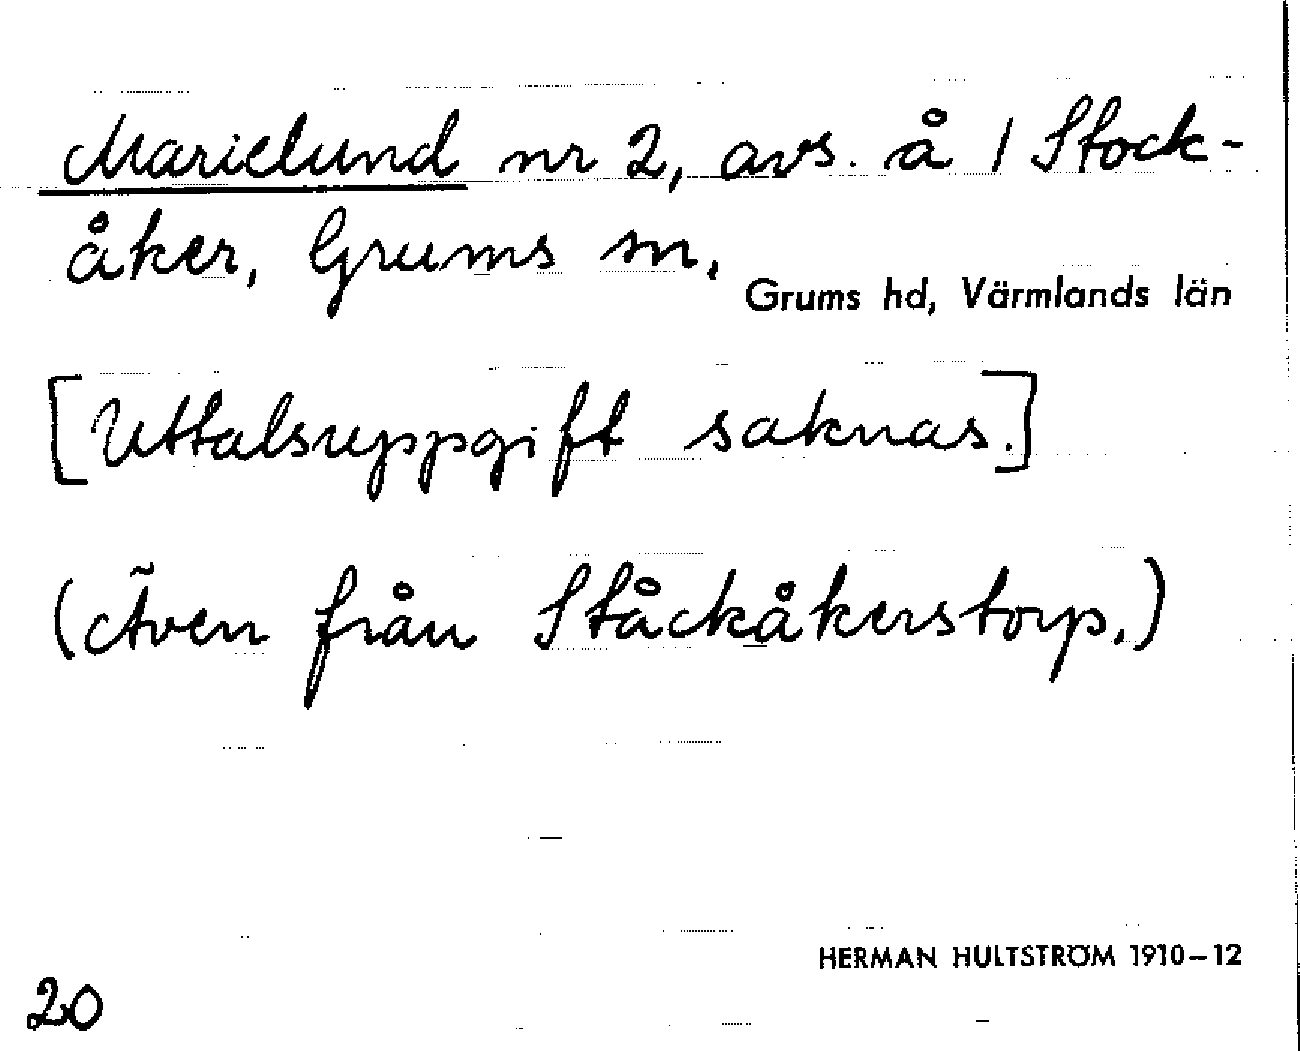 Marielund nr 2, avs. å 1 Stock-
åker, Grums sn,
Grums hd, Värmlands län
[Uttalsuppgift saknas.]
(Även från Ståckåkerstorp.)
HERMAN HULTSTRÖM 1910–12
20